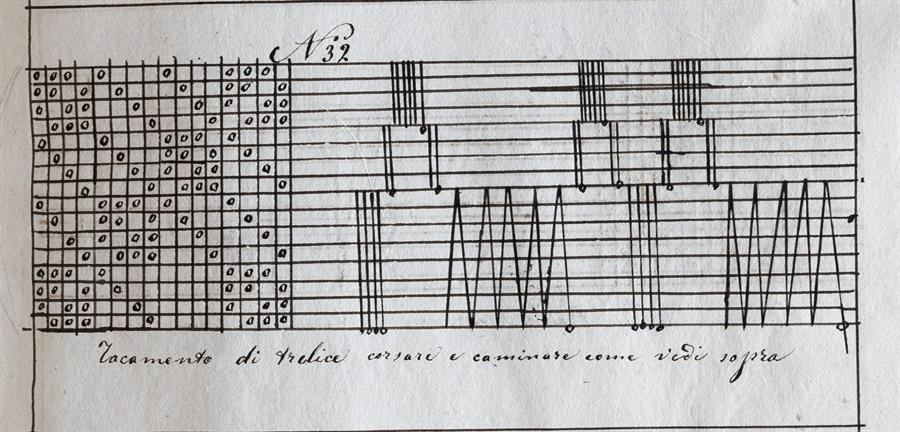 N.° 32
Tacamento di trelice corsare e caminare come vedi sopra